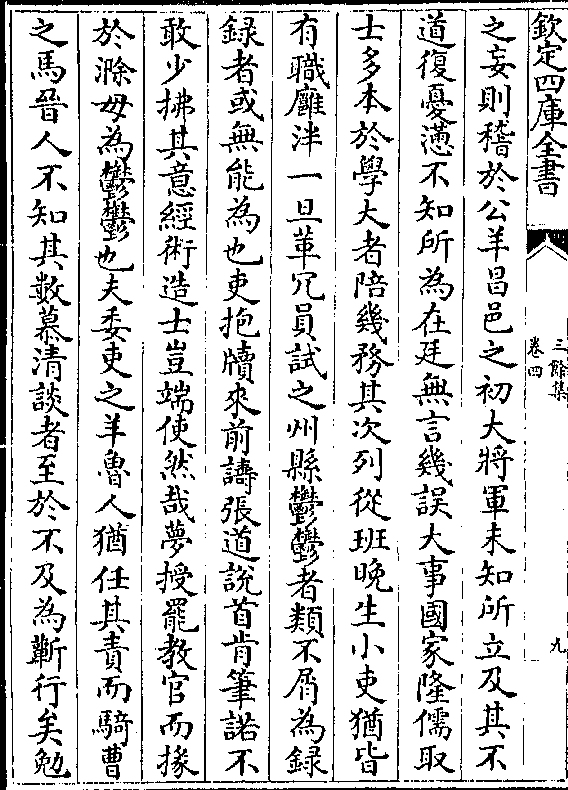 欽定四庫全書
三餘集
卷四
九
之妄則稽於公羊昌邑之初大將軍未知所立及其不
道復憂懣不知所為在廷無言幾誤大事國家隆儒取
士多本於學大者陪幾務其次列從班晚生小吏猶皆
有職廱泮一旦革冗員試之州縣鬱鬱者類不屑為録
録者或無能為也吏抱牘來前譸張道説首肯筆諾不
敢少拂其意經術造士豈端使然哉夢授罷教官而掾
於滁毋為鬱鬱也夫委吏之羊魯人猶任其責而騎曹
之馬晉人不知其數慕清談者至於不及為蘄行矣勉